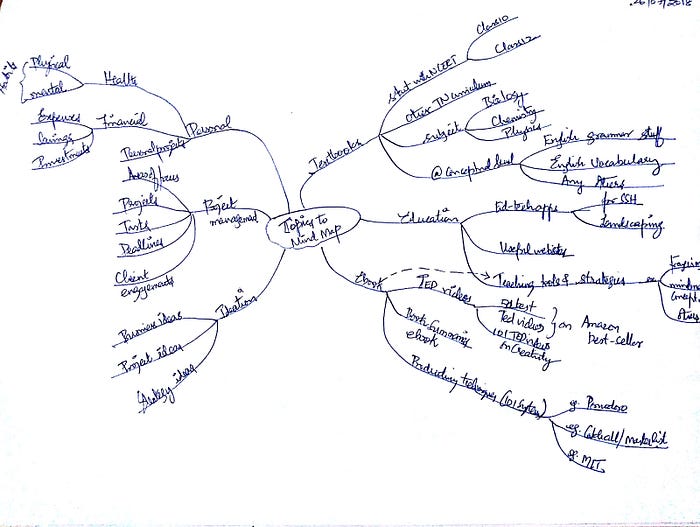 26/07/2018
Topics to
Mind Map
Textbooks
start with NCERT
Class 10
Class 12
other TN curriculum
subject
Biology
Chemistry
Physics
@ conceptual level
English grammar stuff
English Vocabulary
Any others
Education
Ed-tech apps
for CSH
Landscaping
Useful websites
Teaching tools & strategies
Ebook
TED videos
Ted videos
101 TED videos
on Creativity
on Amazon
best-seller
Book Summaries
ebook
techniques (101 systems)
eg. Pomodoro
eg.
eg. MIT
Ideation
Business ideas
Project ideas
ideas
Project
management
Areas of focus
Projects
Tasks
Deadlines
Client
engagements
Personal
Health
Physical
mental
Financial
Expenses
Savings
Investments
Personal projects